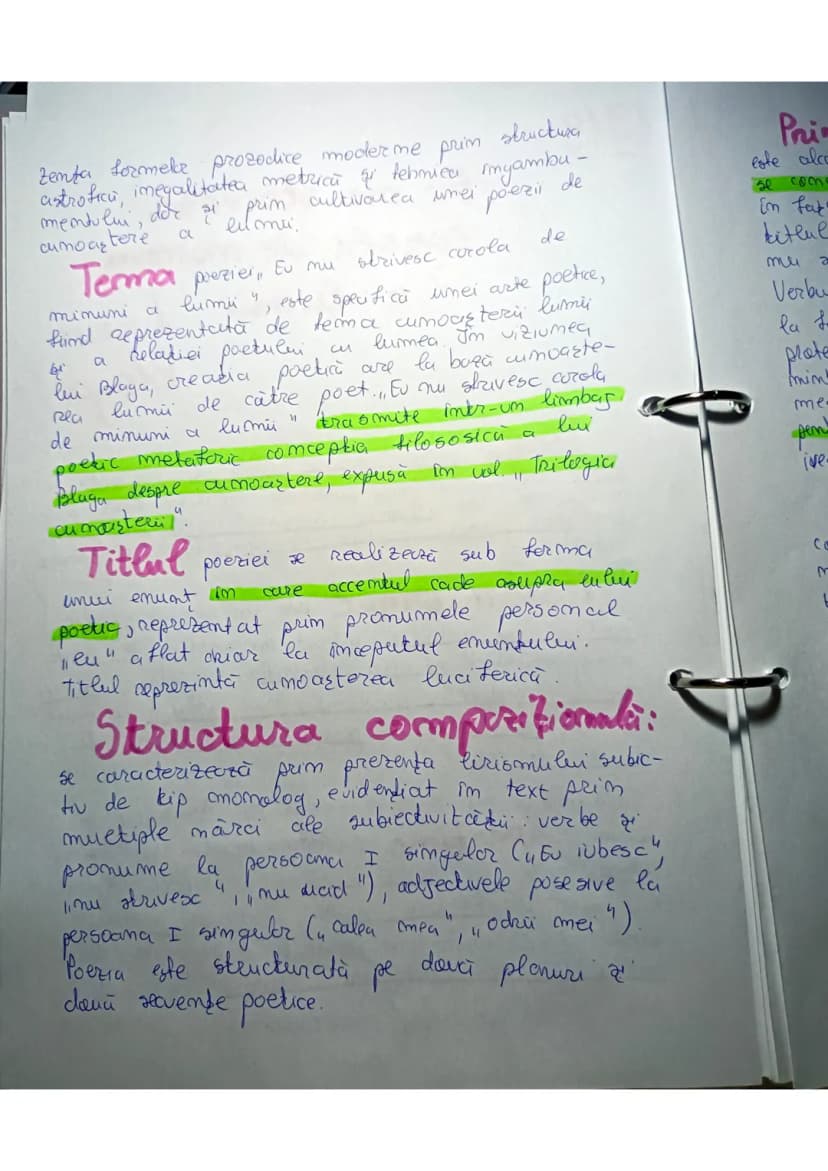 zenţa formele prozodice moderne prin structura
astrofică, inegalitatea metrică şi tehnica ingambu-
mentului, dar şi prin cultivarea unei poezii de
cunoaştere a lumii.
Tema poeziei „Eu nu strivesc corola de
minuni a lumii", este specifică unei arte poetice,
fiind reprezentată de tema cunoaşterii lumii
şi a relaţiei poetului cu lumea. În viziunea
lui Blaga, creaţia poetică are la bază cunoaşte-
rea lumii de către poet. „Eu nu strivesc corola
de minuni a lumii" trasmite într-un limbaj
poetic metaforic concepţia filososică a lui
Blaga despre cunoaştere, expusă în vol. „Trilogia
cunoaşterii".
Titlul poeziei se realizează sub forma
unui enunţ în care accentul cade asupra eului
poetic, reprezentat prin pronumele personal
„eu" aflat chiar la începutul enunţului.
Titlul reprezintă cunoaşterea luciferică.
Structura compoziţională:
se caracterizează prin prezenţa lirismului subiec-
tiv de tip monolog, evidenţiat în text prin
multiple mărci ale subiectivităţii: verbe şi
pronume la persoana I singular („Eu iubesc",
„nu strivesc", „nu ucid"), adjectivele posesive la
persoana I singular („calea mea", „ochii mei")
Poezia este structurată pe două planuri şi
două secvenţe poetice.
este alc
se com
în faţ
titlul
nu
Verbu
la